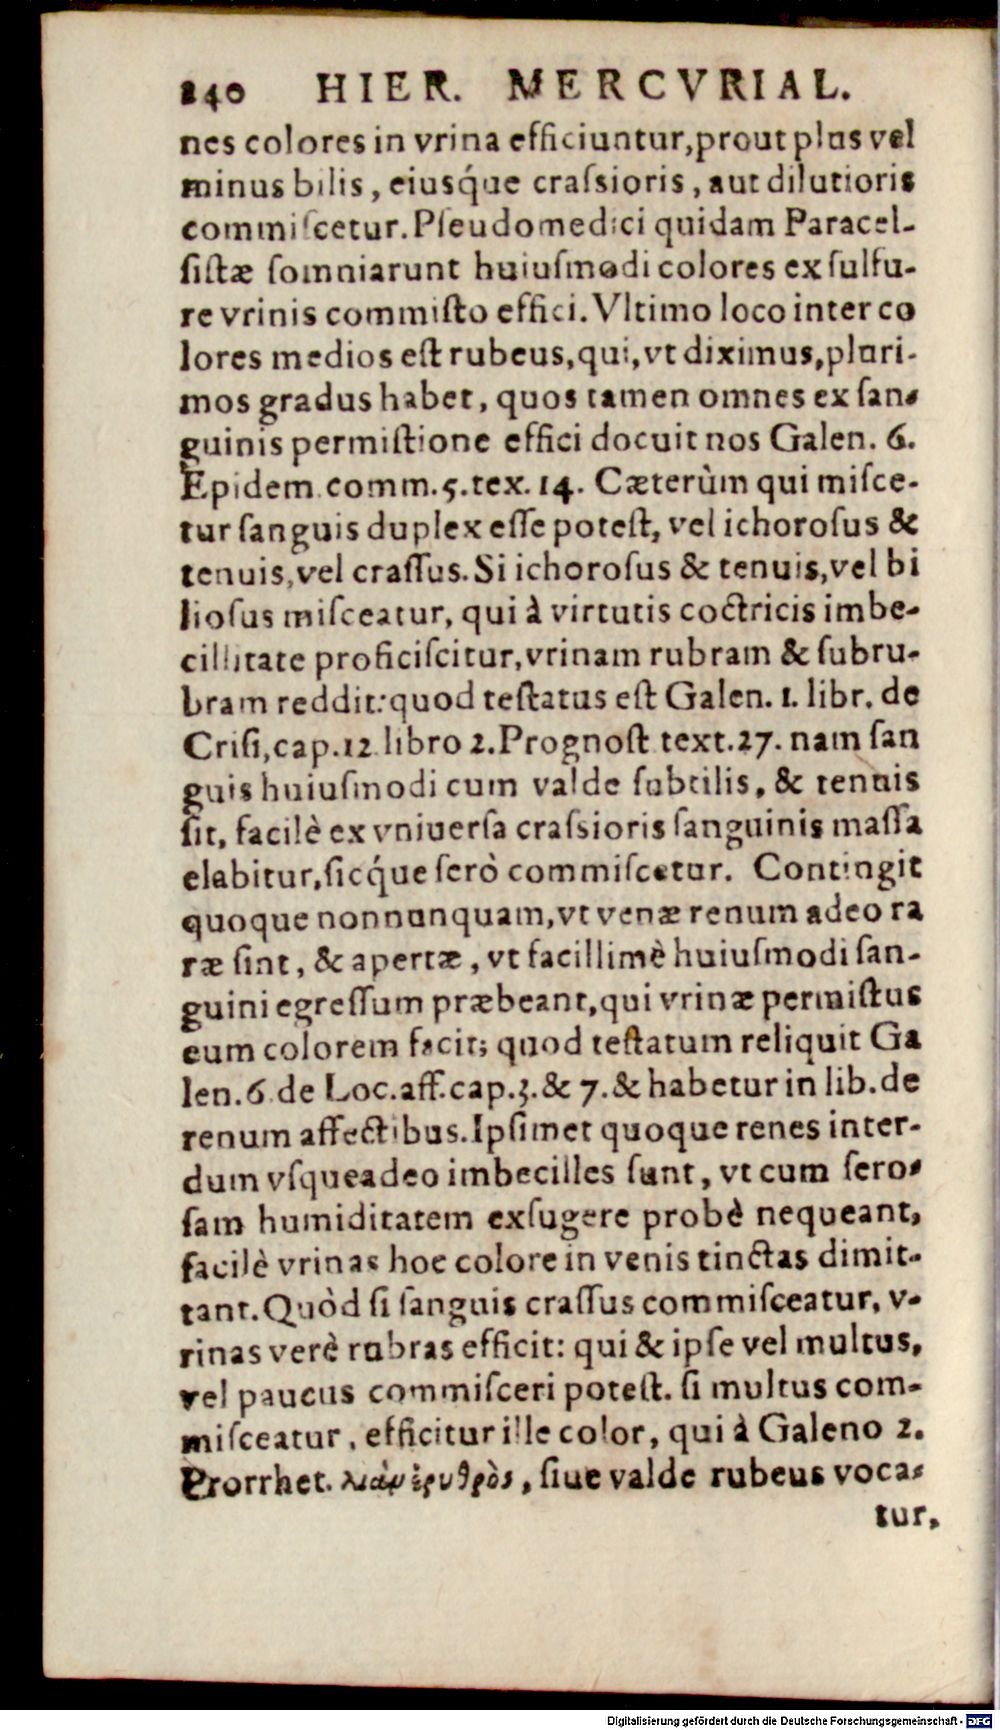 240 HIER. MERCVRIAL.
nes colores in vrina efficiuntur, prout plus vel
minus bilis, eiusq́ue craſsioris, aut dilutioris
commiſcetur. Pſeudomedici quidam Paracel-
ſiſtæ ſomniarunt huiuſmodi colores ex ſulfu-
re vrinis commiſto effici. Vltimo loco inter co
lores medios eſt rubeus, qui, vt diximus, pluri-
mos gradus habet, quos tamen omnes ex ſan-
guinis permiſtione effici docuit nos Galen. 6.
Epidem. comm. 5. tex. 14. Cæterùm qui miſce-
tur ſanguis duplex eſſe poteſt, vel ichoroſus &
tenuis, vel craſſus. Si ichoroſus & tenuis, vel bi
lioſus miſceatur, qui à virtutis coctricis imbe-
cillitate proficiſcitur, vrinam rubram & ſubru-
bram reddit: quod teſtatus eſt Galen. 1. libr. de
Criſi, cap. 12 libro 2. Prognoſt text. 27. nam ſan
guis huiuſmodi cum valde ſubtilis, & tenuis
ſit, facilè ex vniuerſa craſsioris ſanguinis maſſa
elabitur, ſicq́ue ſerò commiſcetur. Contingit
quoque nonnunquam, vt venæ renum adeo ra
ræ ſint, & apertæ, vt facillimè huiuſmodi ſan-
guini egreſſum præbeant, qui vrinæ permiſtus
eum colorem facit; quod teſtatum reliquit Ga
len. 6. de Loc. aff. cap. 3. & 7. & habetur in lib. de
renum affectibus. Ipſimet quoque renes inter-
dum vſqueadeo imbecilles ſunt, vt cum ſero-
ſam humiditatem exſugere probè nequeant,
facilè vrinas hoc colore in venis tinctas dimit-
tant. Quòd ſi ſanguis craſſus commiſceatur, v-
rinas verè rubras efficit: qui & ipſe vel multus,
vel paucus commiſceri poteſt. ſi multus com-
miſceatur, efficitur ille color, qui à Galeno 2.
Prorrhet. λιὰμ ἐρυθρὸς, ſiue valde rubeus voca-
tur,
Digitalisierung gefördert durch die Deutsche Forschungsgemeinschaft - DFG